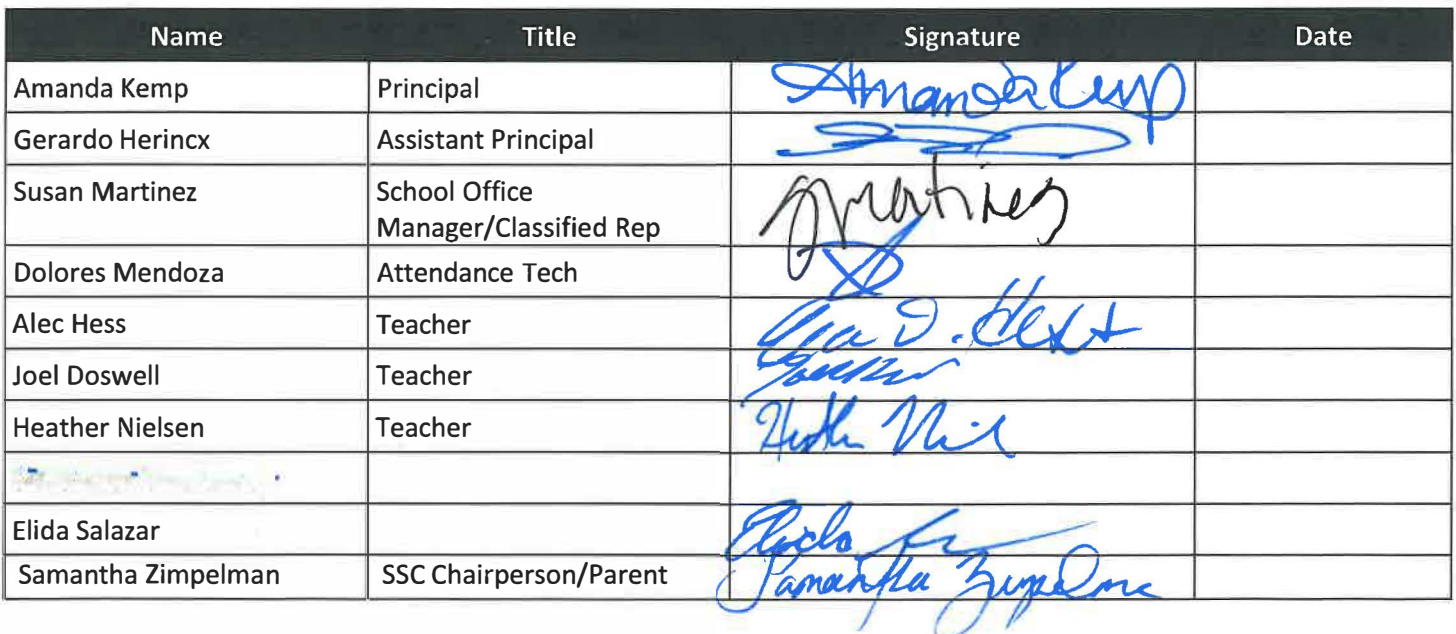 Name Title Signature Date
Amanda Kemp Principal Amanda Kemp
Gerardo Herincx Assistant Principal
Susan Martinez School Office
Manager/Classified Rep
Dolores Mendoza Attendance Tech
Alec Hess Teacher
Joel Doswell Teacher
Heather Nielsen Teacher
Elida Salazar Elida
Samantha Zimpelman SSC Chairperson/Parent Samantha